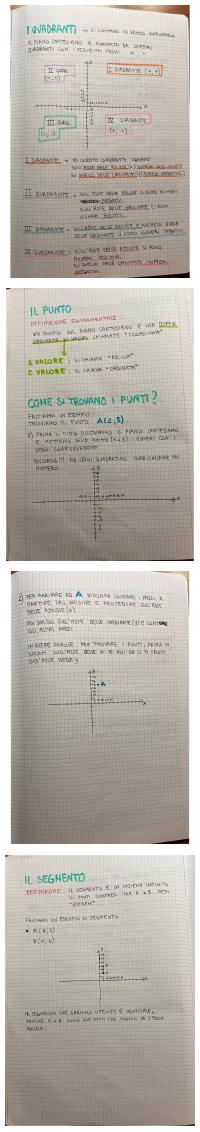 I QUADRANTI → SI CONTANO IN SENSO ANTIORARIO
IL PIANO CARTESIANO È FORMATO DA QUATTRO
QUADRANTI CON I SEGUENTI SEGNI
II QUAD.
(-, +)
I QUADRANTE (+, +)
III QUAD.
(-, -)
IV QUADRANTE
(+, -)
I QUADRANTE = IN QUESTO QUADRANTE
II QUADRANTE = SULL'ASSE DELLE
NEGATIVI
SULL'ASSE DELLE ORDINATE CI SONO
NUMERI POSITIVI
III QUADRANTE = SULL'ASSE DELLE ASCISSE E ANCHE SU QUELLE
DELLE ORDINATE CI SONO NUMERI NEGATIVI
IV QUADRANTE = SULL'ASSE DELLE ASCISSE CI SONO
NUMERI POSITIVI
SU QUELLO DELLE ORDINATE NUMERI
NEGATIVI
IL PUNTO
DEFINIZIONE FONDAMENTALE:
UN PUNTO SUL PIANO CARTESIANO È UNA COPPIA
ORDINATA DI VALORI CHIAMATE "COORDINATE"
1 VALORE: SI CHIAMA "ASCISSA"
2 VALORE: SI CHIAMA "ORDINATA"
COME SI TROVANO I PUNTI?
FACCIAMO UN ESEMPIO:
TROVIAMO IL PUNTO A(2;5)
1) PRIMA DI TUTTO DISEGNAMO IL PIANO CARTESIANO
E METTIAMO SULLE RETTE (X e Y) I NUMERI CON I
SEGNI CORRISPONDENTI
RICORDA!!! AD OGNI QUADRATINO CORRISPONDE UN
NUMERO
2) PER ARRIVARE AD A BISOGNA CONTARE I PASSI A
PARTIRE DALL'ORIGINE E PROSEGUIRE SULL'ASSE
DELLE ASCISSE (X)
POI SALGO SULL'ASSE DELLE ORDINATE (Y) E CONTO
GLI ALTRI PASSI
DUNQUE PER TROVARE I PUNTI, PRIMA TI
SPOSTI SULL'ASSE DELLE X E POI DA LÌ TI SPOSTI
SULL'ASSE DELLE Y
A
IL SEGMENTO
DEFINIZIONE: IL SEGMENTO È UN INSIEME INFINITO
DI PUNTI COMPRESI TRA A e B DETTI
"ESTREMI".
FACCIAMO UN ESEMPIO DI SEGMENTO
IL SEGMENTO CHE ABBIAMO OTTENUTO È VERTICALE,
PERCHÉ A e B SONO DUE PUNTI CHE HANNO LA STESSA
ASCISSA.